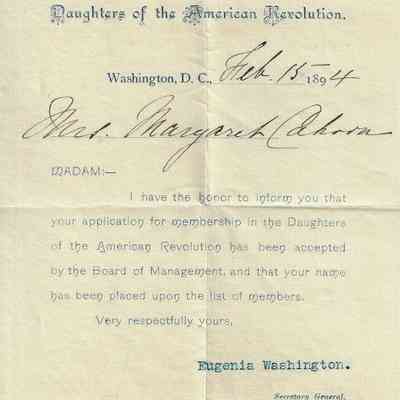 Daughters of the American Revolution.
Washington, D. C., Feb. 15 1894
Mrs. Margaret Cahoon
MADAM:—
I have the honor to inform you that
your application for membership in the Daughters
of the American Revolution has been accepted
by the Board of Management, and that your name
has been placed upon the list of members.
Very respectfully yours,
Eugenia Washington.
Secretary General.